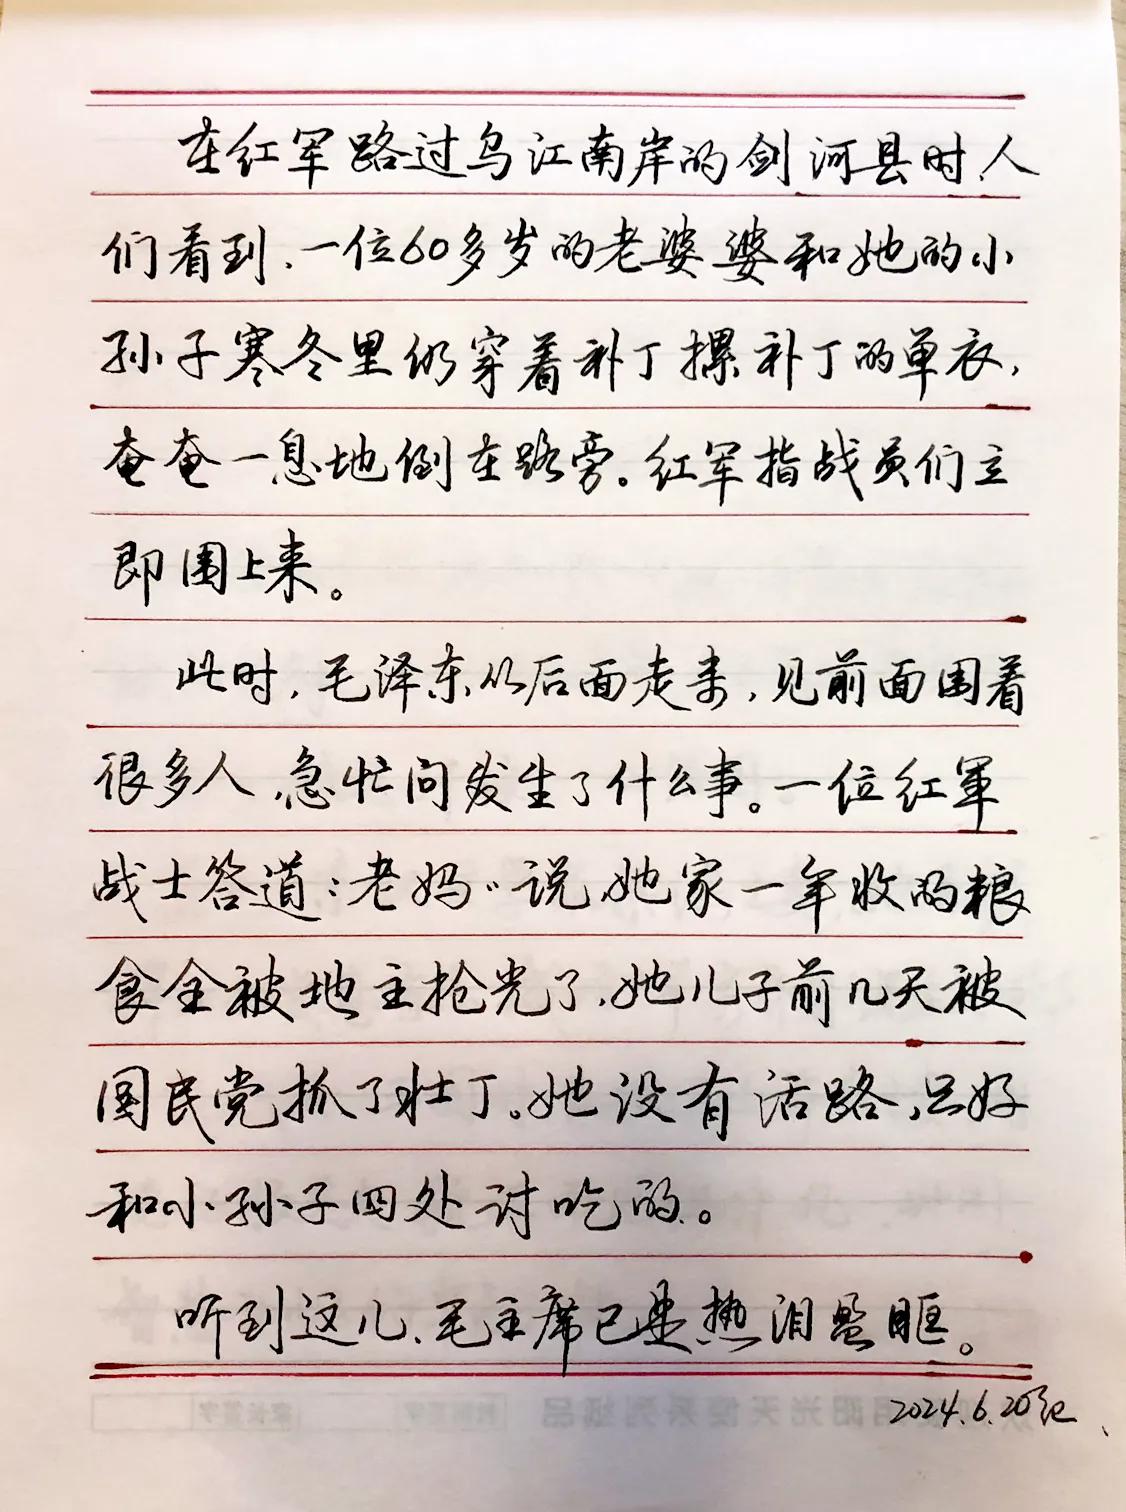 在红军路过乌江南岸的剑河县时、人
们看到、一位60多岁的老婆婆和她的小
孙子寒冬里仍穿着补丁摞补丁的单衣,
奄奄一息地倒在路旁。红军指战员们立
即围上来。
此时,毛泽东从后面走来,见前面围着
很多人,急忙问发生了什么事。一位红軍
战士答道:老妈〃说、她家一年收的粮
食全被地主抢光了、她儿子前几天被
国民党抓了壮丁。她没有活路,只好
和小孙子四处讨吃的。
听到这儿、毛主席已是热泪盈眶。
2024.6.20